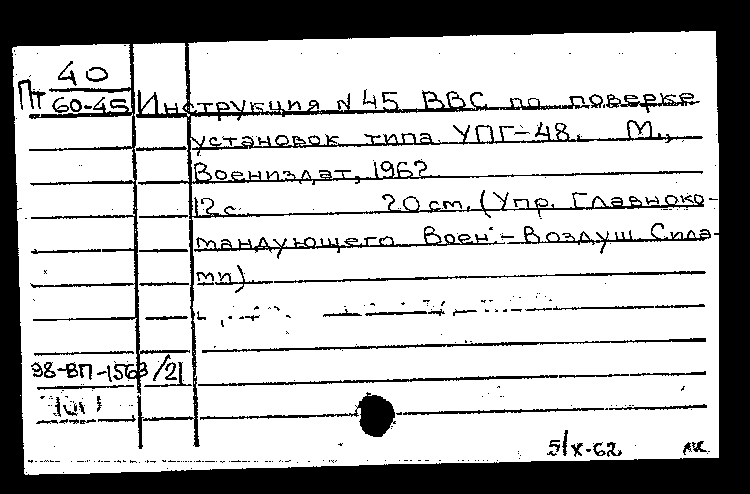 40
Пт 60-45 Инструкция N 45 ВВС по поверке
установок типа УПГ-48. М.,
Воениздат, 1962
12 с. 20 ст. (Упр. Главноко-
мандующего Воен.-Воздуш. Сила-
ми)
98-ВП-1563/21
5/X-62